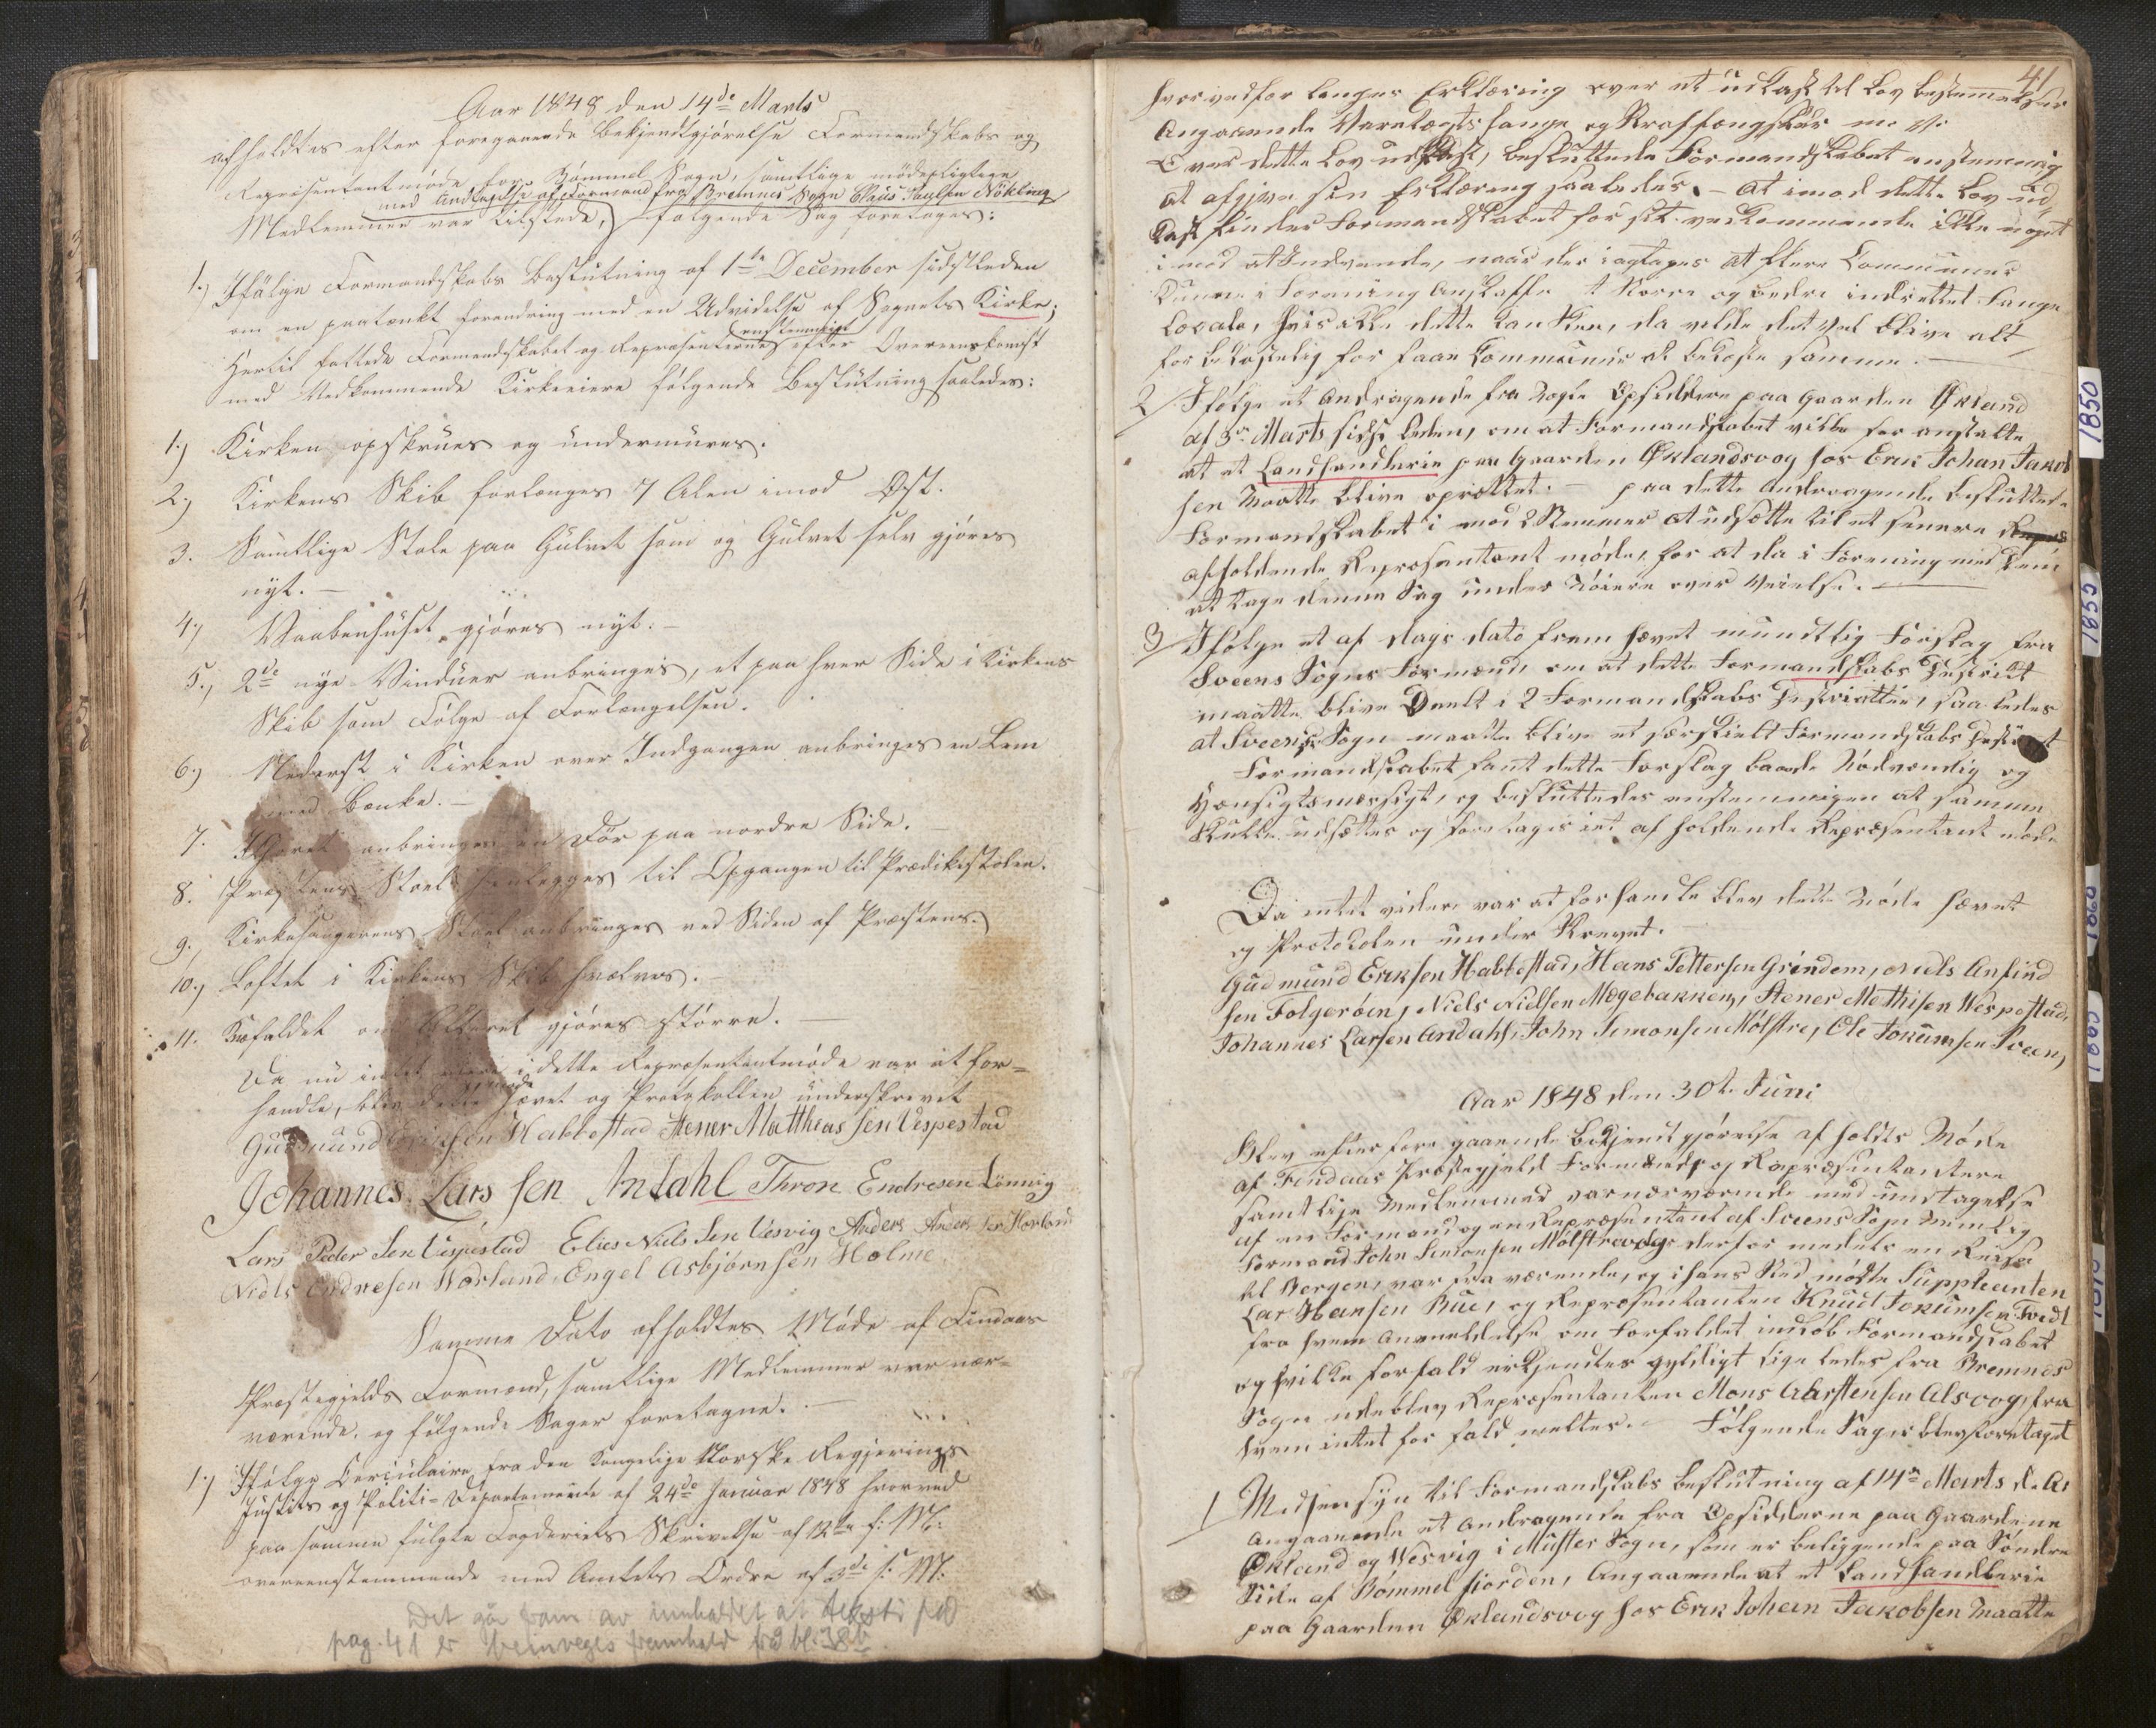 Aar 1848 den 14de Marts
afholdtes efter foregaaende Bekjendtgjørelse Formandskabs og
Repræsentantmøde for Bømmel Sogn, samtlige mødepligtige
med Undtagelse af Formand fra Bremnes Sogn Claus Paulsen Nökling
Medlemmer var tilstede, følgende Sag foretages:
1.) Ifølge Formandskabs Beslutning af 1ste December sidstleden
om en paatænkt Forandring med en Udvidelse af Sognets Kirke;
eenstemmigt
Hertil fattede Formandskabet og Repræsentanterne efter Overeenskomst
med Vedkommende Kirkeeiere følgende Beslutning saaledes:
1.) Kirken opskrues og undermures.
2.) Kirkens Skib forlænges 7 Alen imod Øst.
3. Samtlige Stole paa Gulvet som og Gulvet selv gjøres
nyt. —
4.) Vaabenhuset gjøres nyt. —
5.) 2de nye Vinduer anbringes, et paa hver Side i Kirkens
Skib som Følge af Forlængelsen.
6.) Nederst i Kirken over Indgangen anbringes en Lem
med Bænke. —
7. I Choret anbringes en Dør paa nordre Side. —
8. Præstens Stoel henlegges til Opgangen til Prædikestolen.
9.) Kirkesangerens Stoel anbringes ved Siden af Præstens.
10.) Loftet i Kirkens Skib hvælves. —
11. Knæfaldet om Alteret gjøres større. —
Da nu intet mere i dette Repræsentantmøde var at for=
handle, blev dette Møde hævet og Protokollen underskrevet
Gudmund Eriksen Habbestad Stener Matthias sen Vespestad
Johannes Lars sen Andahl Thron Endresen Lönning
Lars Peder Sen Vespestad Elies Niels Sen Viesvig Anders Anders sen Horland
Niels Endresen Vorland, Engel Asbjørnsen Holme
Samme Dato afholdtes Møde af Findaas
Præstegjelds Formænd, samtlige Medlemmer var nær=
værende, og følgende Sager foretagne. —
1.) Ifølge Circulaire fra den Kongelige Norske Regjerings
Justits og Politi=Departemente af 24de Januar 1848 hvorved
paa samme fulgte Fogderiets Skrivelse af 12te f: M:
overeenstemmende med Amtets Ordre af 3de f: M:
Det går fram av innhaldet at teksti på
pag. 41 er beinveges framhald frå bl. 38b.
41
hvorved forlanges Erklæring over et udkast til Lov bestemmelser
Angaaende Varetægts fange og Straffængsler m. v.
Over dette Lov udkast, besluttede Formandskabet enstemmig
at afgive sin Erklæring saaledes. — At imod dette Lov ud
kast finder Formandskabet for sit vedkommende ikke noget
imod at Indvende, naar der iagtages at flere Communer
kunne i Forening Anskaffe et større og bedre indrettet Fange
Locale, hvis ikke dette kan skee, da vilde det vel blive alt
for bekostelig for faae Communer at bekoste samme. —
2/ Ifølge et Andragende fra nogle Opsiddere paa Gaarden Økland
af 3de Marts sidst leden, om at Formandskabet ville for anstalte
at et Landhandlerie paa Gaarden Øklandsvog hos Erik Johan Jakob
sen Maatte blive oprettet. — paa dette Andragende besluttede
Formandskabet i mod 2 Stemmer at udsætte til et senere
afholdende Repræsentant møde, for at da i Forening med dem
at tage denne Sag under Nøiere over Veielse. —
3/ Ifølge et af dags dato frem sævet mundtlig Forslag fra
Sveens Sogns Formænd, om at dette Formandskabs Distrikt
maatte blive Deelt i 2 Formandskabs Distrikter, saa ledes
at Sveens Sogn maatte blive et særskielt Formandskabs Distrikt
Formandskabet fant dette Forslag baade Nødvendig og
Hensigtsmæssigt, og besluttedes enstemmigen at samme
skulle udsættes og foretages i et afholdende Repræsentant møde
Da intet videre var at forhandle blev dette Møde hævet
og Protokolen under skrevet.
Gudmund Eriksen Habbestad, Hans Pettersen Grindem, Niels Anfind
sen Folgerøen, Niels Nielsen Møgebakken, Stener Mathisen Wespestad
Johannes Larsen Andahl, John Simonsen Mølstre, Ole Jokumsen Sveen,
Aar 1848 den 30te Juni
Blev efter fore gaaende bekjendtgjørelse af holdts Møde
af Findaas Præstegjeld Formænd og Repræsentantere
samtlige Medlemmer var nærværende med undtagelse
af en Formand og en Repræsentant af Sveens Sogn Nemlig
Formand John Simonsen Mølstrevog derfor medels en Reise
til Bergen, var fra værende, og i hans Sted mødte Suppleanten
Lar Hansen Bue, og Repræsentanten Knud Jokumsen Tvedt
fra hvem Anmeldelse om Forfaldet indløb Formandskabet
og hvilke forfald erkjendtes gyldigt lige ledes fra Bremnes
Sogn udeblev Repræsentanten Mons Aarstensen Alsvog, fra
hvem intet for fald meltes. — Følgende Sager blev foretaget
1/ Med hensyn til Formandskabs beslutning af 14de Marts d. A.
angaaende et Andragende fra Opsidderne paa Gaardene
Økland og Wesvig i Møster Sogn, som er beliggende paa Søndre
Side af Bømmel fiorden, Angaaende at et Landhandlerie
paa Gaarden Øklandsvog hos Erik Johan Jakobsen maatte
1850
1855
1860
1865
1870